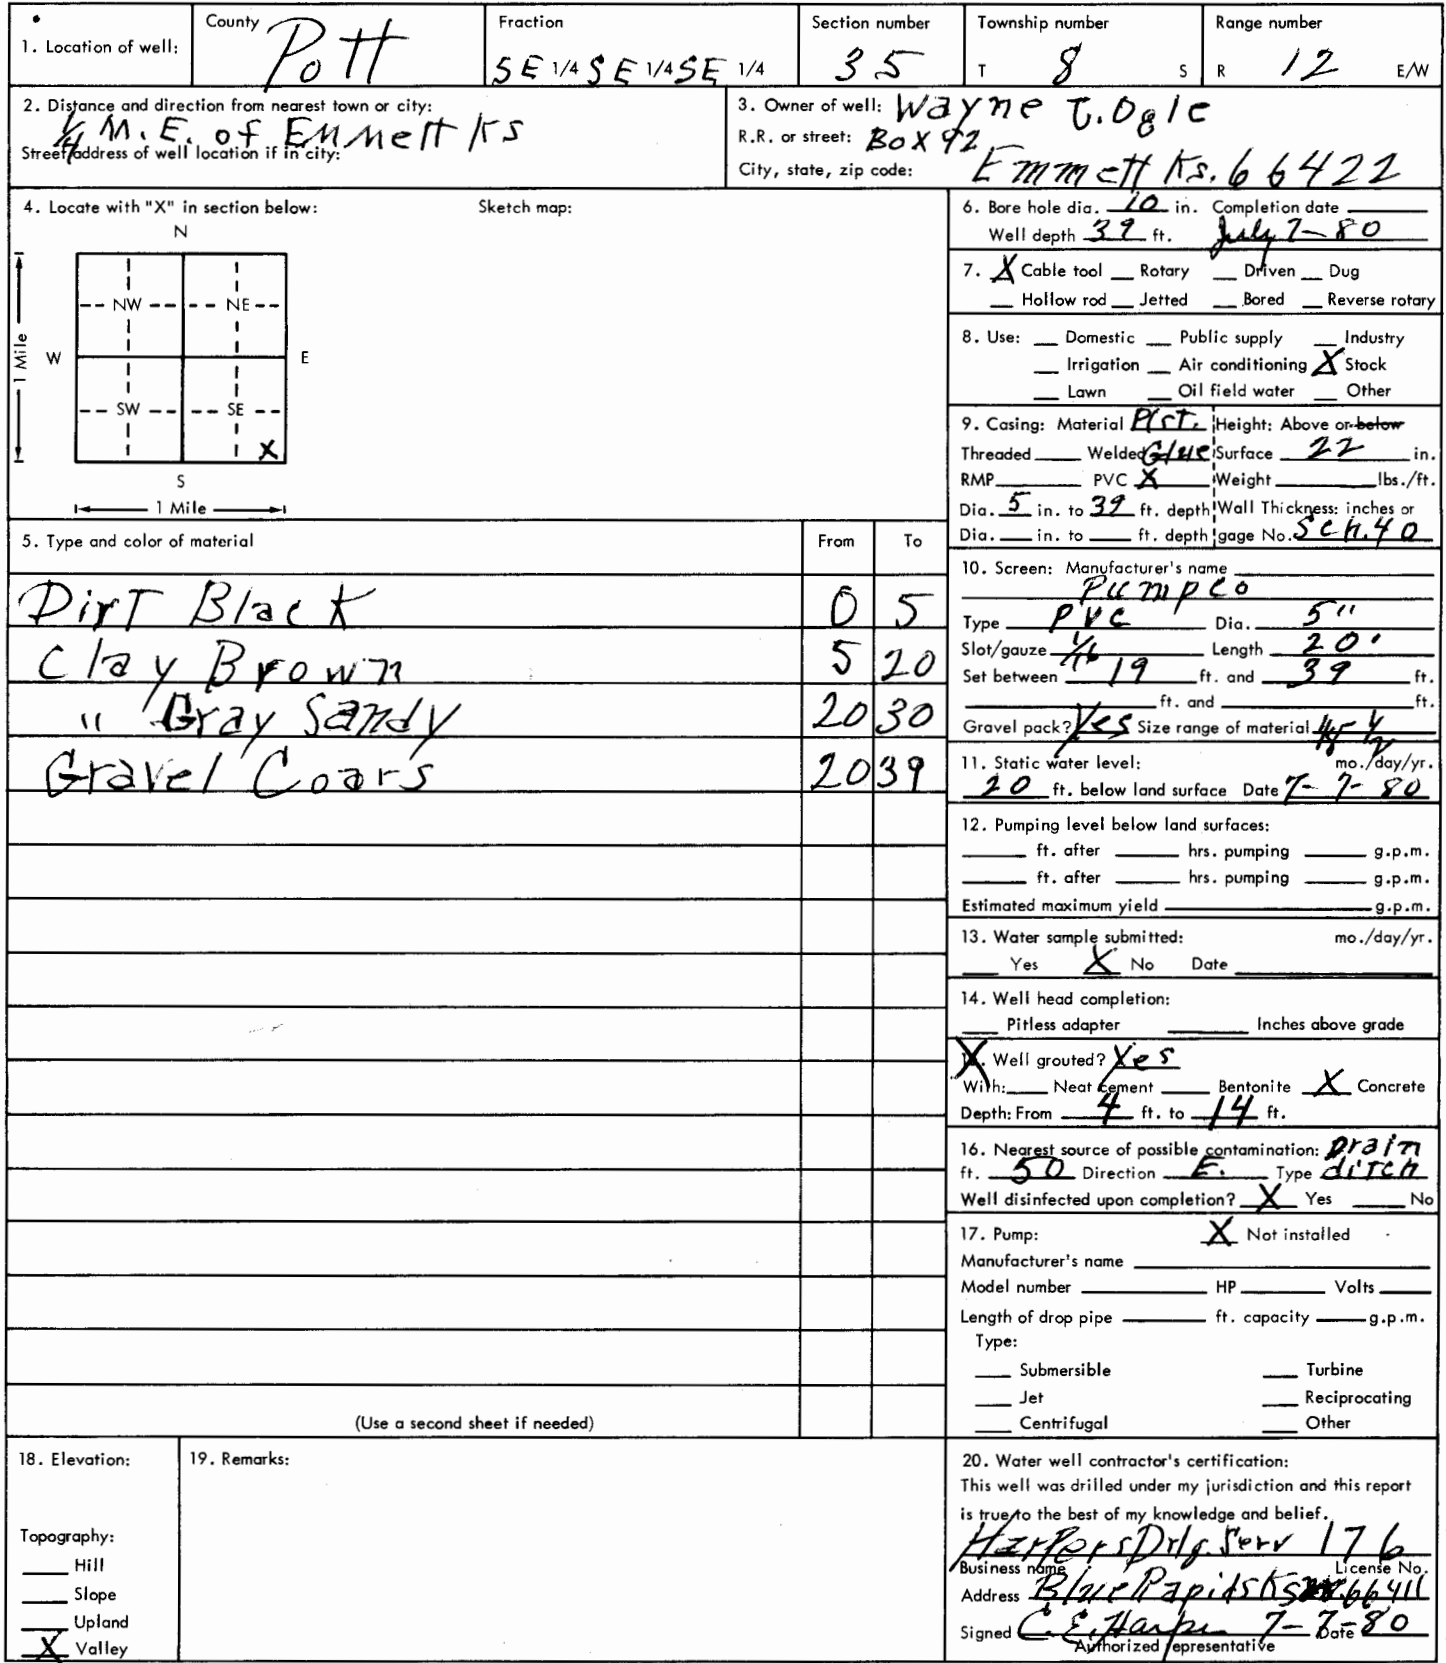 1. Location of well: County Pott Fraction SE 1/4 SE 1/4 SE 1/4 Section number 35 Township number T 8 S Range number R 12 E/W
2. Distance and direction from nearest town or city:
1/4 M. E. of Emmett Ks
Street address of well location if in city:
3. Owner of well: Wayne T. Ogle
R.R. or street: Box 92
City, state, zip code: Emmett Ks. 66422
4. Locate with "X" in section below: Sketch map:
N
NW NE
W E
1 Mile
SW SE
X
S
1 Mile
5. Type and color of material From To
Dirt Black 0 5
Clay Brown 5 20
" Gray Sandy 20 30
Gravel Coars 20 39
(Use a second sheet if needed)
6. Bore hole dia. 10 in. Completion date
Well depth 39 ft. July 7-80
7. X Cable tool Rotary Driven Dug
Hollow rod Jetted Bored Reverse rotary
8. Use: Domestic Public supply Industry
Irrigation Air conditioning X Stock
Lawn Oil field water Other
9. Casing: Material Plst. Height: Above or below
Threaded Welded Glue Surface 22 in.
RMP PVC X Weight lbs./ft.
Dia. 5 in. to 39 ft. depth Wall Thickness: inches or
Dia. in. to ft. depth gage No. Sch. 40
10. Screen: Manufacturer's name
Pumpco
Type PVC Dia. 5"
Slot/gauze 1/16 Length 20'
Set between 19 ft. and 39 ft.
ft. and ft.
Gravel pack? Yes Size range of material 1/8 1/2
11. Static water level: mo./day/yr.
20 ft. below land surface Date 7-7-80
12. Pumping level below land surfaces:
ft. after hrs. pumping g.p.m.
ft. after hrs. pumping g.p.m.
Estimated maximum yield g.p.m.
13. Water sample submitted: mo./day/yr.
Yes X No Date
14. Well head completion:
Pitless adapter Inches above grade
X Well grouted? Yes
With: Neat cement Bentonite X Concrete
Depth: From 4 ft. to 14 ft.
16. Nearest source of possible contamination: Drain
ft. 50 Direction E. Type ditch
Well disinfected upon completion? X Yes No
17. Pump: X Not installed
Manufacturer's name
Model number HP Volts
Length of drop pipe ft. capacity g.p.m.
Type:
Submersible Turbine
Jet Reciprocating
Centrifugal Other
18. Elevation:
Topography:
Hill
Slope
Upland
X Valley
19. Remarks:
20. Water well contractor's certification:
This well was drilled under my jurisdiction and this report
is true to the best of my knowledge and belief.
Harpers Drlg. Serv 176
Business name License No.
Address Blue Rapids Ks 66411
Signed C. E. Harper 7-7-80 Date
Authorized representative